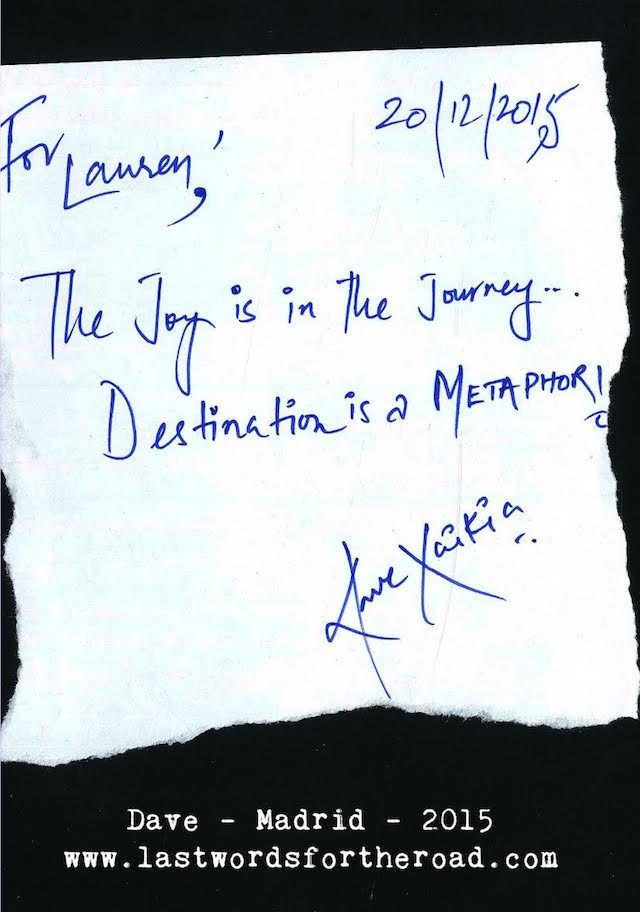 20/12/2015
For Lauren,
The Joy is in the Journey...
Destination is a METAPHOR!
Dave Xaikia
Dave - Madrid - 2015
www.lastwordsfortheroad.com